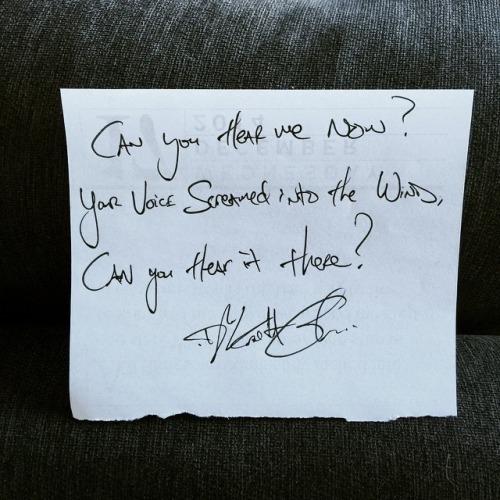 Can you Hear me Now?
Your Voice Screamed into the Wind,
Can you Hear it there?